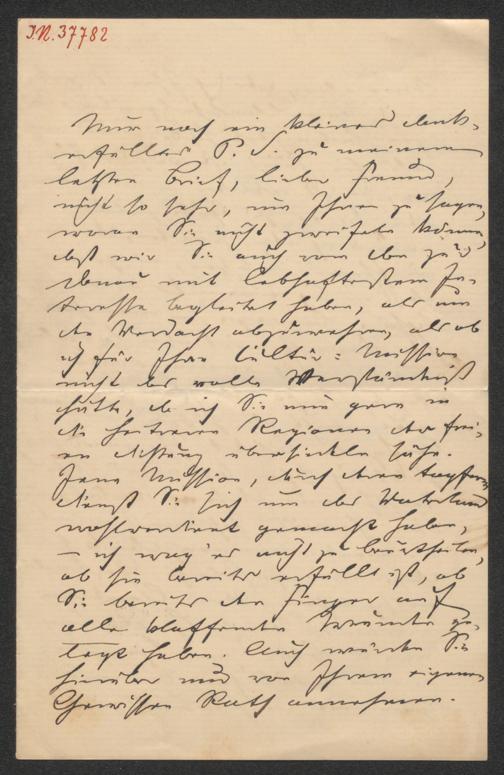 I.N. 37782
Nur noch ein kleines dank-
erfülltes P. S. zu meinem
letzten Brief, lieber Freund,
nicht so sehr, um Ihnen zu sagen,
woran Sie nicht zweifeln können,
daß wir Sie auch von
mit lebhaftestem In-
teresse begleitet haben, als um
den Verdacht abzuwehren, als ob
ich für Ihre Cultur-Mission
nicht das volle Verständniß
hätte, da ich Sie nun gern in
die heiteren Regionen der frei-
en Dichtung übersiedeln sähe.
Jene Mission, durch deren tapfern
Dienst Sie sich um das Vaterland
wohlverdient gemacht haben,
– ich wag' es nicht zu beurtheilen,
ob sie bereits erfüllt ist, ob
Sie bereits den Finger auf
alle klaffenden Wunden ge-
legt haben. Auch würden Sie
hierüber nur von Ihrem eigenen
Gewissen Rath annehmen.